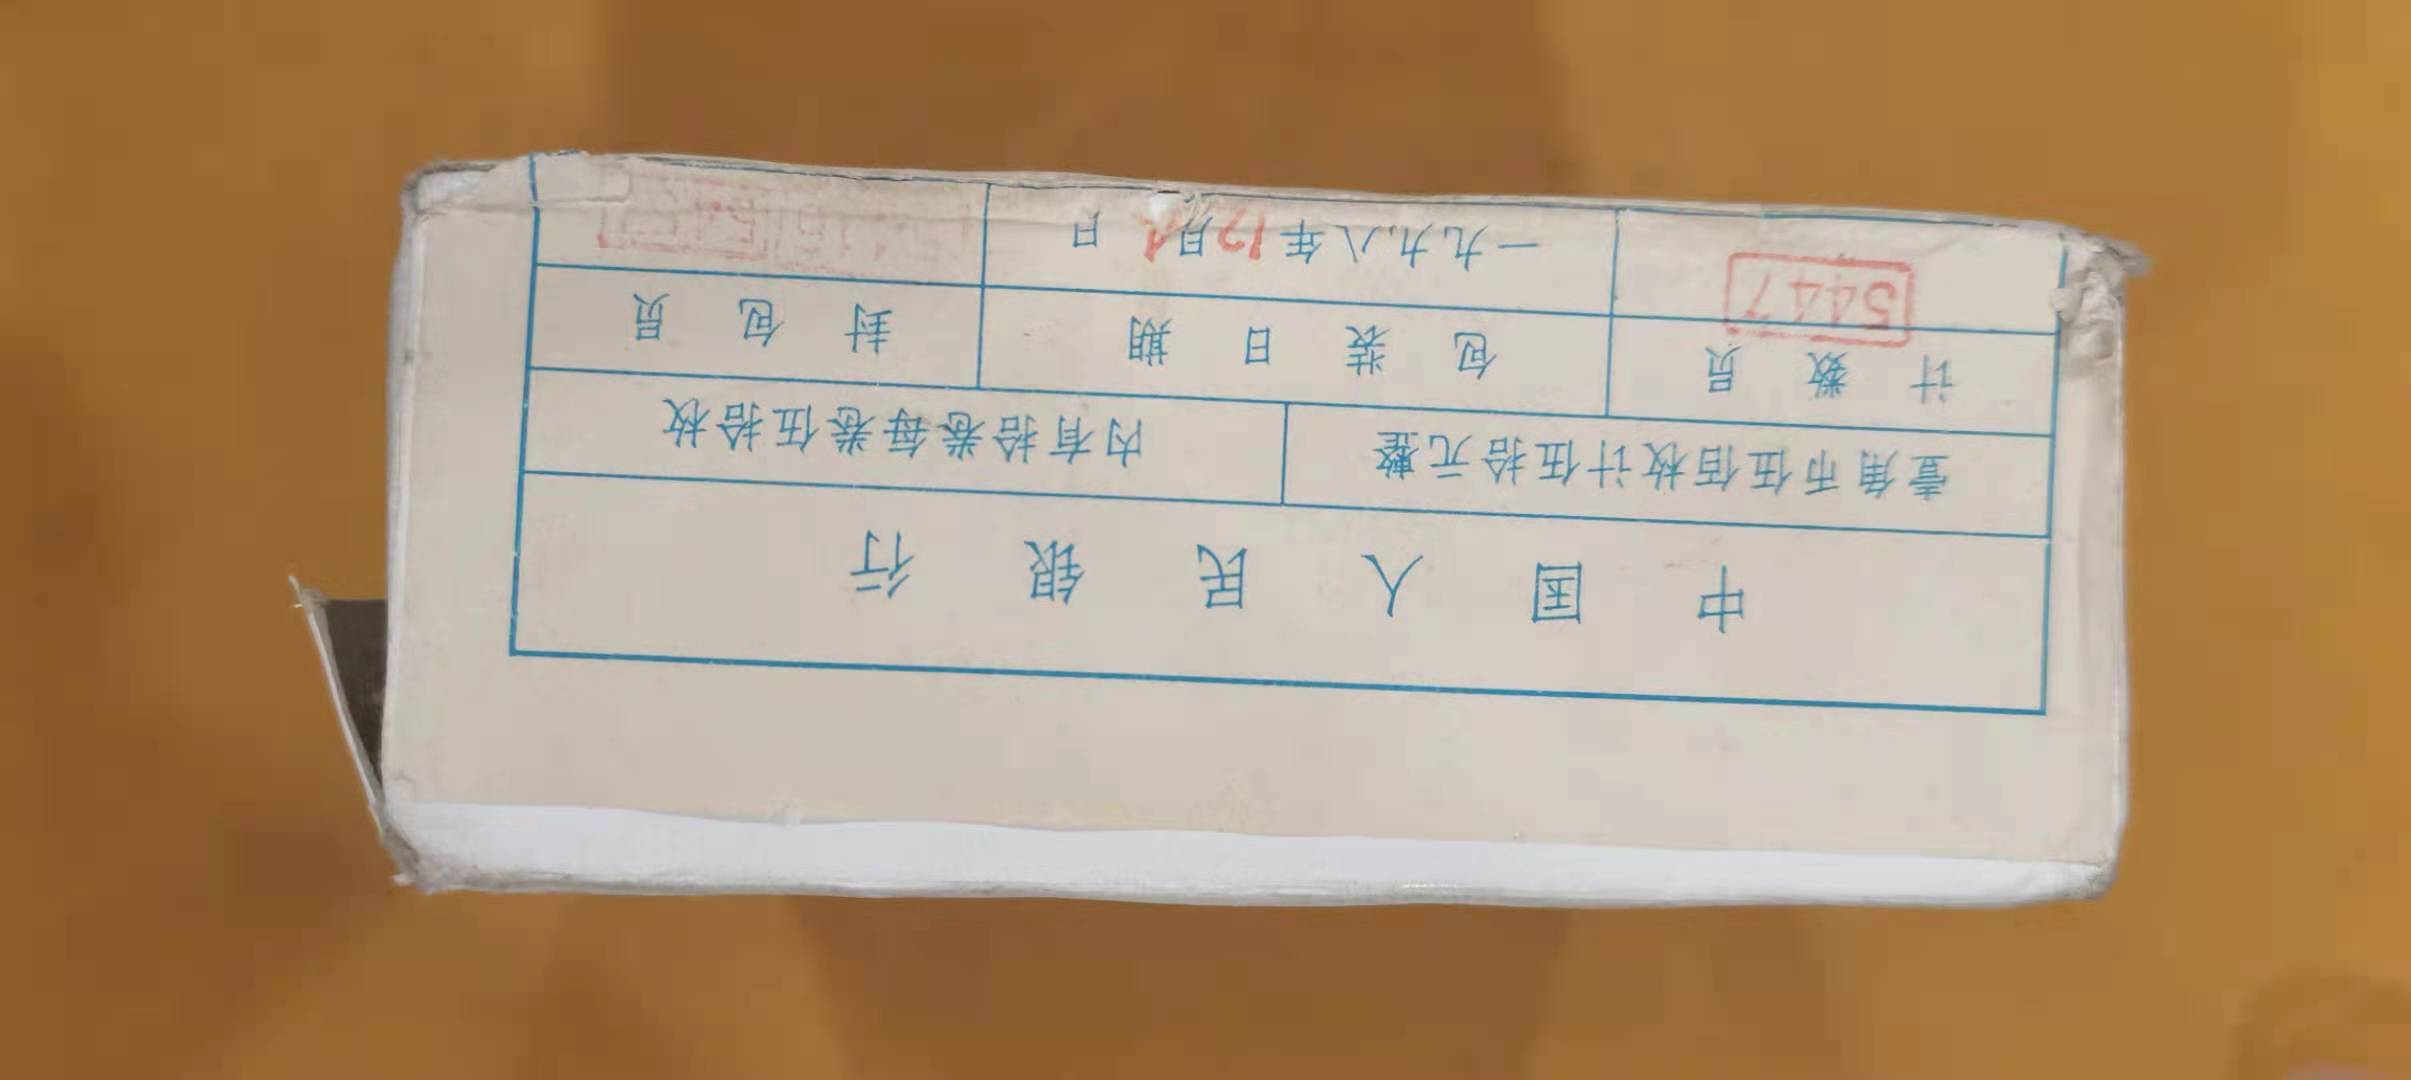 中国人民银行
壹角币伍佰枚计伍拾元整 内有拾卷每卷伍拾枚
计数员 包装日期 封包员
5447 一九九八年12月 日